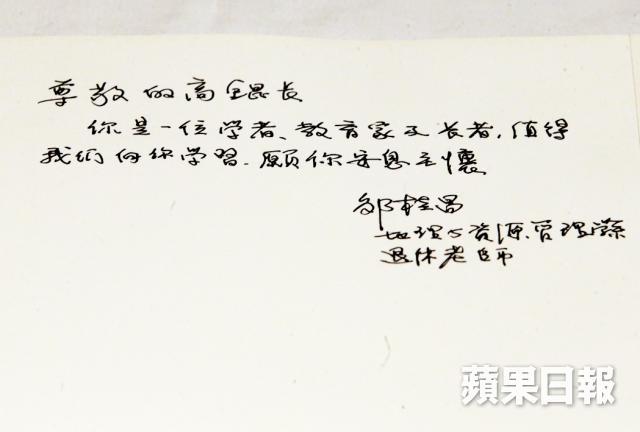 尊敬的高錕長
你是一位学者、教育家及长者,值得
我们向你学習.願你安息主懷
鄒桂昌
地理与資源管理學系
退休老師
蘋果日報